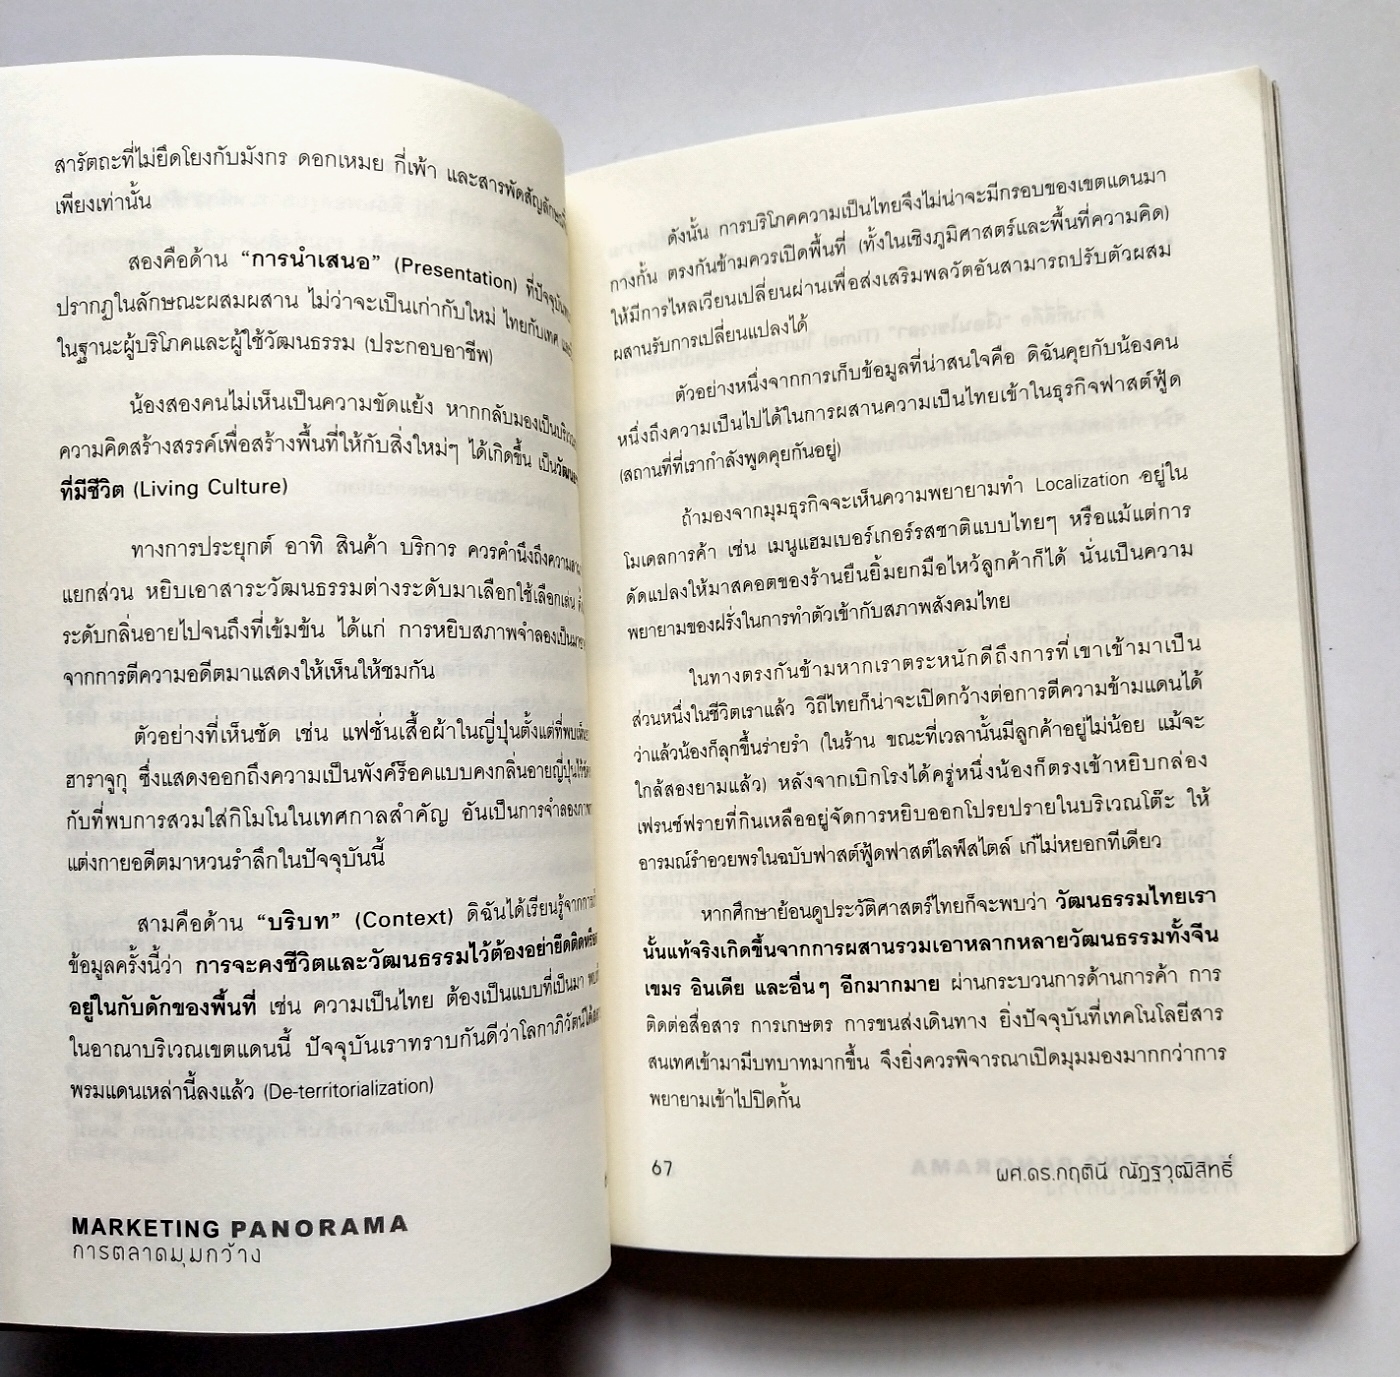 สารัตถะที่ไม่ยึดโยงกับมังกร ดอกเหมย กี่เพ้า และสารพัดสัญลักษณ์
เพียงเท่านั้น
สองคือด้าน “การนำเสนอ” (Presentation) ที่ปัจจุบัน
ปรากฏในลักษณะผสมผสาน ไม่ว่าจะเป็นเก่ากับใหม่ ไทยกับเทศ
ในฐานะผู้บริโภคและผู้ใช้วัฒนธรรม (ประกอบอาชีพ)
น้องสองคนไม่เห็นเป็นความขัดแย้ง หากกลับมองเป็น
ความคิดสร้างสรรค์เพื่อสร้างพื้นที่ให้กับสิ่งใหม่ๆ ได้เกิดขึ้น เป็น
ที่มีชีวิต (Living Culture)
ทางการประยุกต์ อาทิ สินค้า บริการ ควรคำนึงถึง
แยกส่วน หยิบเอาสาระวัฒนธรรมต่างระดับมาเลือกใช้เลือกเล่น
ระดับกลิ่นอายไปจนถึงที่เข้มข้น ได้แก่ การหยิบสภาพจำลอง
จากการตีความอดีตมาแสดงให้เห็นให้ชมกัน
ตัวอย่างที่เห็นชัด เช่น แฟชั่นเสื้อผ้าในญี่ปุ่นตั้งแต่ที่พบเห็น
ฮาราจูกุ ซึ่งแสดงออกถึงความเป็นพังค์ร็อคแบบคงกลิ่นอายญี่ปุ่น
กับที่พบการสวมใส่กิโมโนในเทศกาลสำคัญ อันเป็นการจำลอง
แต่งกายอดีตมาหวนรำลึกในปัจจุบันนี้
สามคือด้าน “บริบท” (Context) ดิฉันได้เรียนรู้จากการ
ข้อมูลครั้งนี้ว่า การจะคงชีวิตและวัฒนธรรมไว้ต้องอย่ายึดติด
อยู่ในกับดักของพื้นที่ เช่น ความเป็นไทย ต้องเป็นแบบที่เป็นมา
ในอาณาบริเวณเขตแดนนี้ ปัจจุบันเราทราบกันดีว่าโลกาภิวัตน์
พรมแดนเหล่านี้ลงแล้ว (De-territorialization)
MARKETING PANORAMA
การตลาดมุมกว้าง
ดังนั้น การบริโภคความเป็นไทยจึงไม่น่าจะมีกรอบของเขตแดนมา
กางกั้น ตรงกันข้ามควรเปิดพื้นที่ (ทั้งในเชิงภูมิศาสตร์และพื้นที่ความคิด)
ให้มีการไหลเวียนเปลี่ยนผ่านเพื่อส่งเสริมพลวัตอันสามารถปรับตัวผสม
ผสานรับการเปลี่ยนแปลงได้
ตัวอย่างหนึ่งจากการเก็บข้อมูลที่น่าสนใจคือ ดิฉันคุยกับน้องคน
หนึ่งถึงความเป็นไปได้ในการผสานความเป็นไทยเข้าในธุรกิจฟาสต์ฟู้ด
(สถานที่ที่เรากำลังพูดคุยกันอยู่)
ถ้ามองจากมุมธุรกิจจะเห็นความพยายามทำ Localization อยู่ใน
โมเดลการค้า เช่น เมนูแฮมเบอร์เกอร์รสชาติแบบไทยๆ หรือแม้แต่การ
ดัดแปลงให้มาสคอตของร้านยืนยิ้มยกมือไหว้ลูกค้าก็ได้ นั่นเป็นความ
พยายามของฝรั่งในการทำตัวเข้ากับสภาพสังคมไทย
ในทางตรงกันข้ามหากเราตระหนักดีถึงการที่เขาเข้ามาเป็น
ส่วนหนึ่งในชีวิตเราแล้ว วิถีไทยก็น่าจะเปิดกว้างต่อการตีความข้ามแดนได้
ว่าแล้วน้องก็ลุกขึ้นร่ายรำ (ในร้าน ขณะที่เวลานั้นมีลูกค้าอยู่ไม่น้อย แม้จะ
ใกล้สองยามแล้ว) หลังจากเบิกโรงได้ครู่หนึ่งน้องก็ตรงเข้าหยิบกล่อง
เฟรนช์ฟรายที่กินเหลืออยู่จัดการหยิบออกโปรยปรายในบริเวณโต๊ะ ให้
อารมณ์รำอวยพรในฉบับฟาสต์ฟู้ดฟาสต์ไลฟ์สไตล์ เก๋ไม่หยอกทีเดียว
หากศึกษาย้อนดูประวัติศาสตร์ไทยก็จะพบว่า วัฒนธรรมไทยเรา
นั้นแท้จริงเกิดขึ้นจากการผสานรวมเอาหลากหลายวัฒนธรรมทั้งจีน
เขมร อินเดีย และอื่นๆ อีกมากมาย ผ่านกระบวนการด้านการค้า การ
ติดต่อสื่อสาร การเกษตร การขนส่งเดินทาง ยิ่งปัจจุบันที่เทคโนโลยีสาร
สนเทศเข้ามามีบทบาทมากขึ้น จึงยิ่งควรพิจารณาเปิดมุมมองมากกว่าการ
พยายามเข้าไปปิดกั้น
67
ผศ.ดร.กฤตินี ณัฏฐวุฒิสิทธิ์